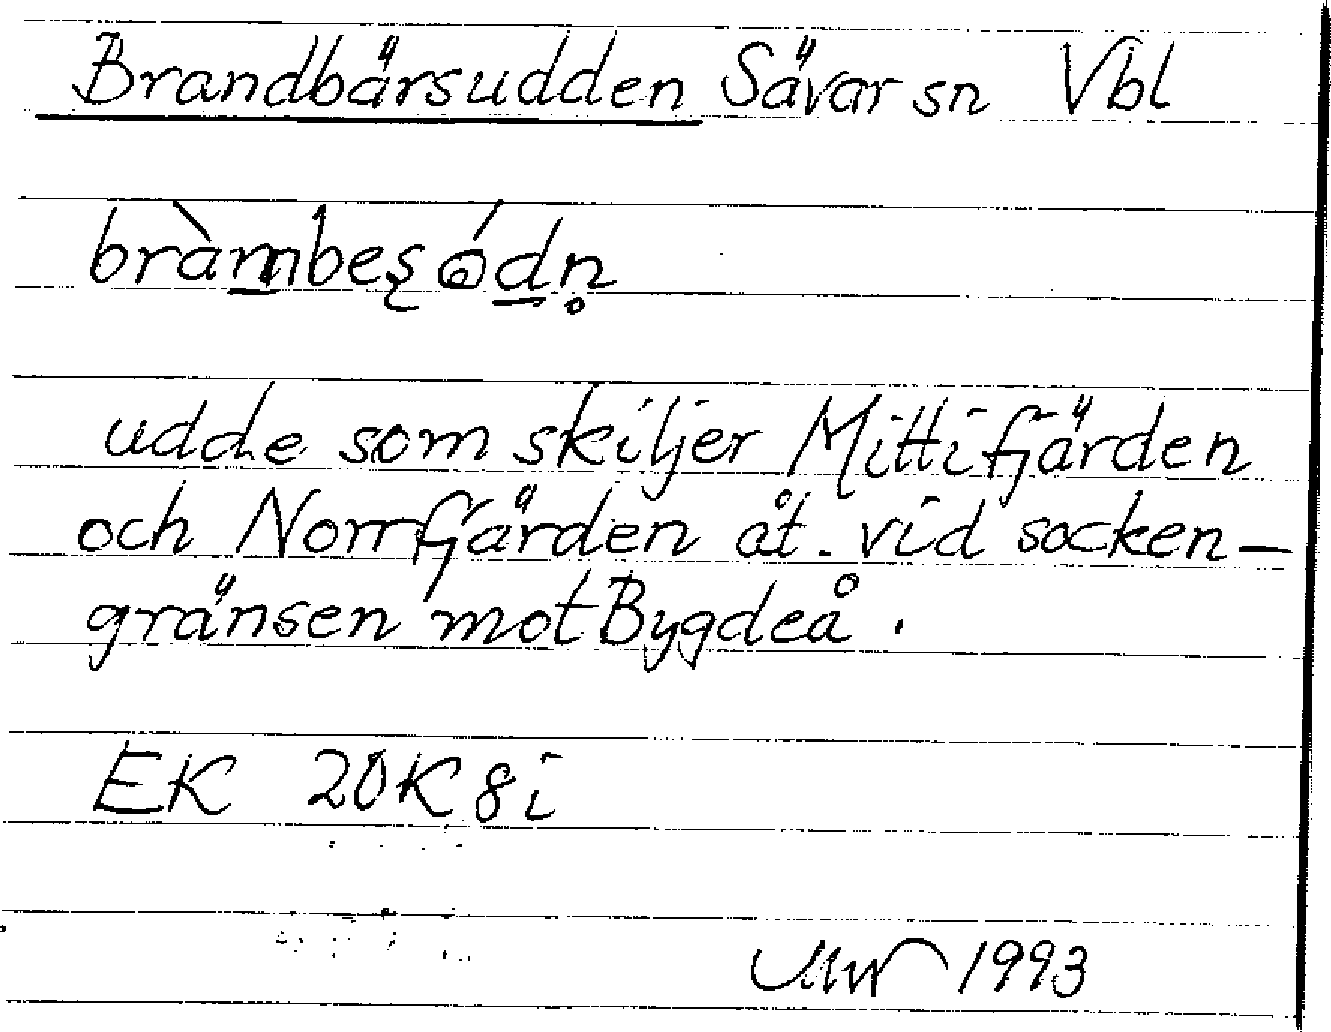 Brandbärsudden Sävar sn Vbl
bràm̲beʂɷ́d̲n̥
udde som skiljer Mittifjärden
och Norrfjärden åt. vid socken-
gränsen mot Bygdeå.
EK 20K 8i
1993